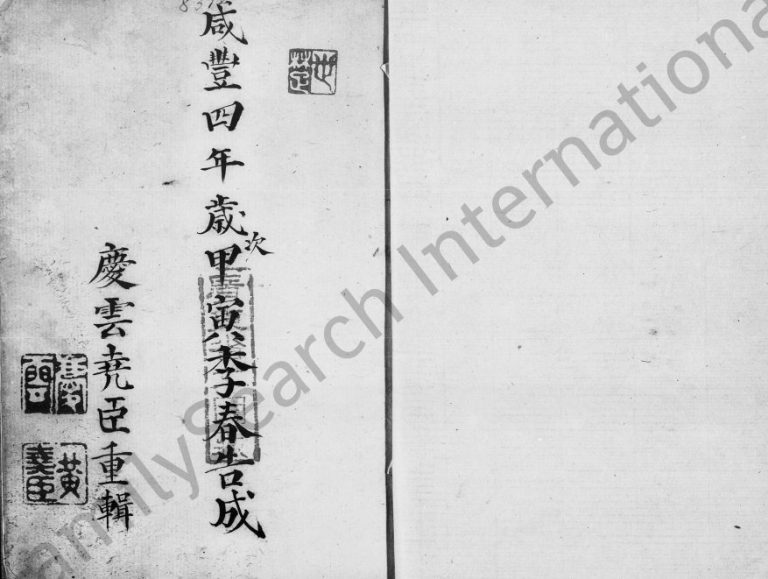 咸豐四年歲次甲寅季春告成
慶雲堯臣重輯
慶雲
黃堯臣
amilySearch Internationa